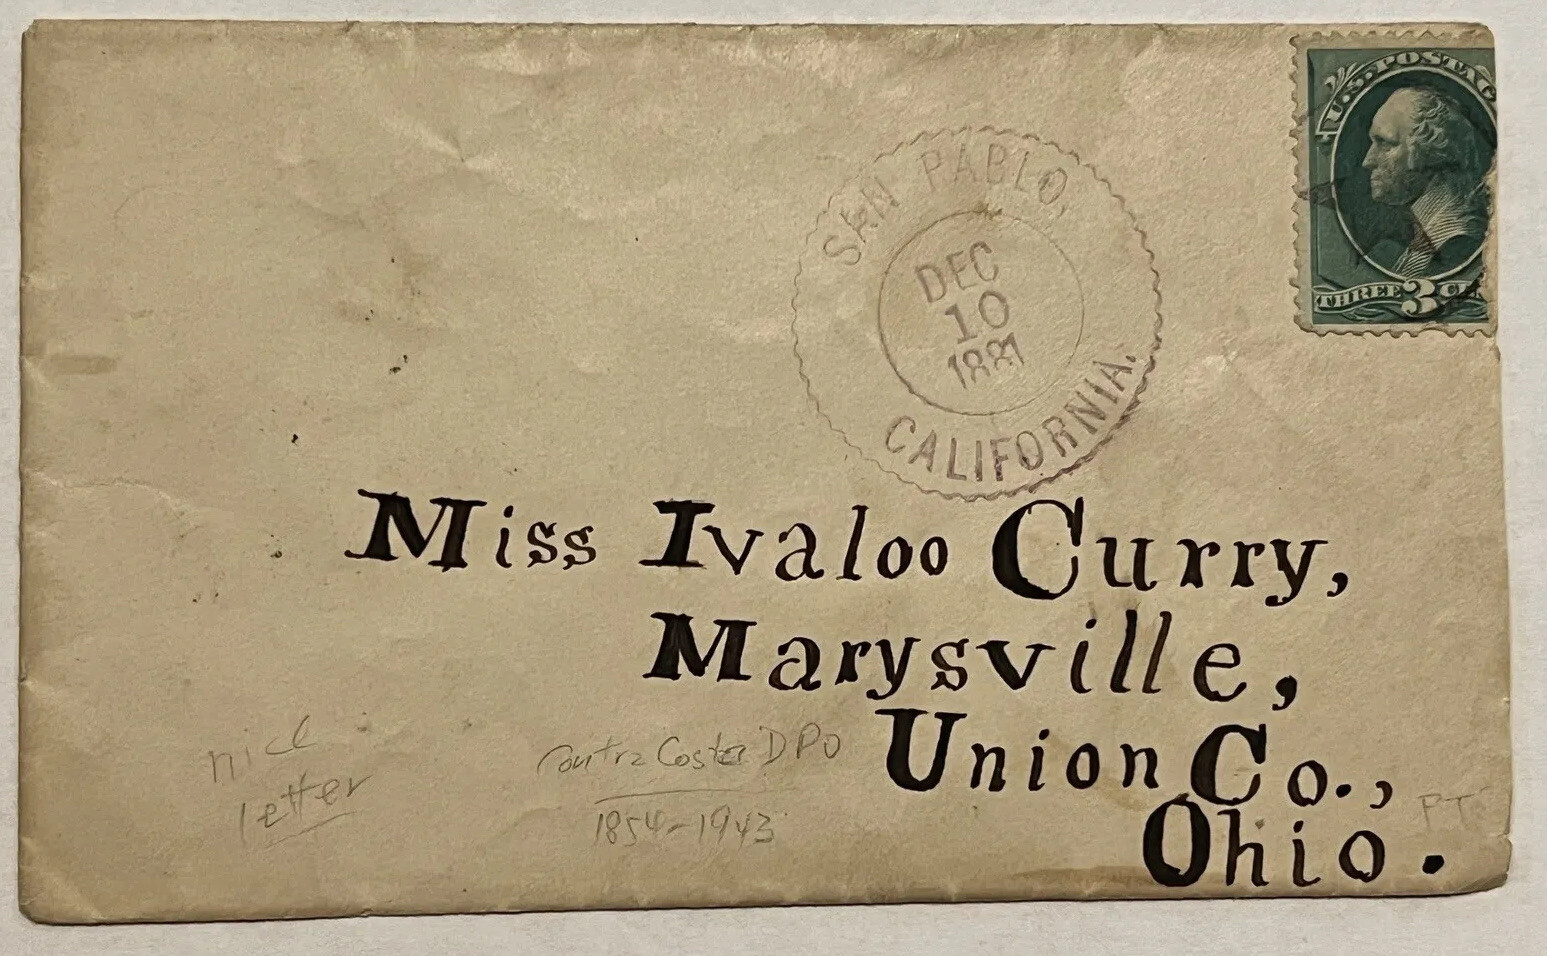 U.S. POSTAG
THREE 3 CE
SAN PABLO,
DEC
10
1881
CALIFORNIA.
Miss Ivaloo Curry,
Marysville,
Union Co.,
Ohio.
nice
letter
Contra Costa DPO
1854-1943
PT